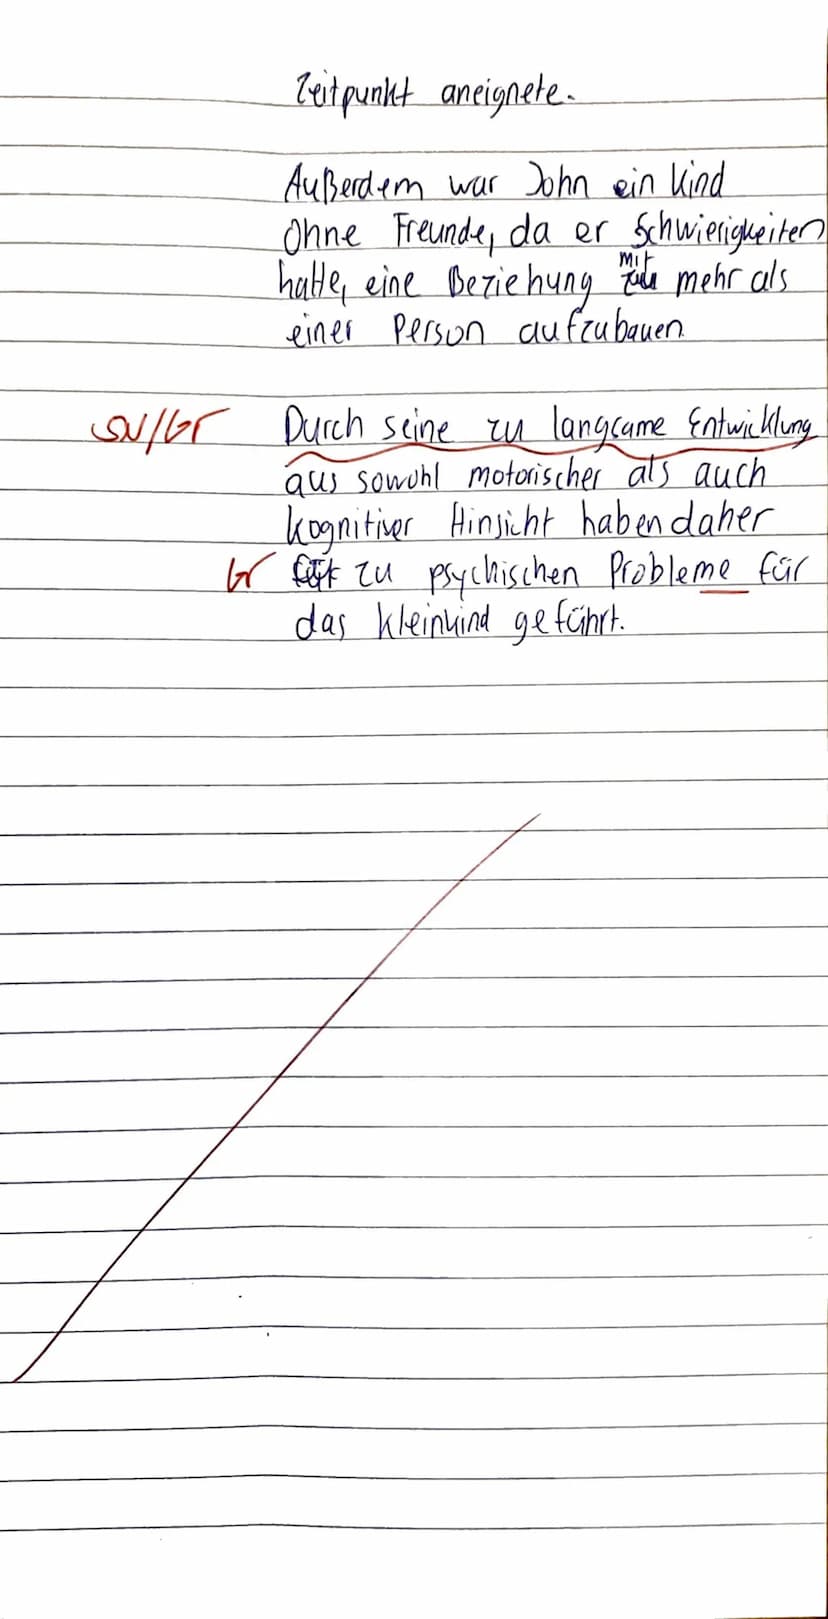 Zeitpunkt aneignete.
Außerdem war John ein Kind
Ohne Freunde, da er Schwierigkeiten
hatte, eine Beziehung mit mehr als
einer Person aufzubauen.
SN/Gr Durch seine zu langsame Entwicklung
aus sowohl motorischer als auch
kognitiver Hinsicht haben daher
Gr zu psychischen Probleme für
das Kleinkind geführt.